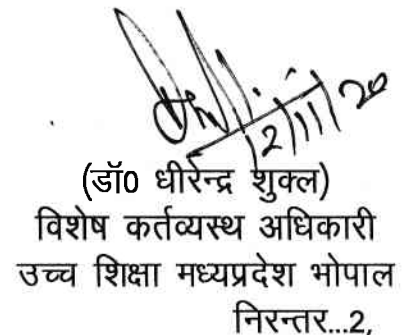 2/11/20
(डॉ0 धीरेन्द्र शुक्ल)
विशेष कर्तव्यस्थ अधिकारी
उच्च शिक्षा मध्यप्रदेश भोपाल
निरन्तर...2,